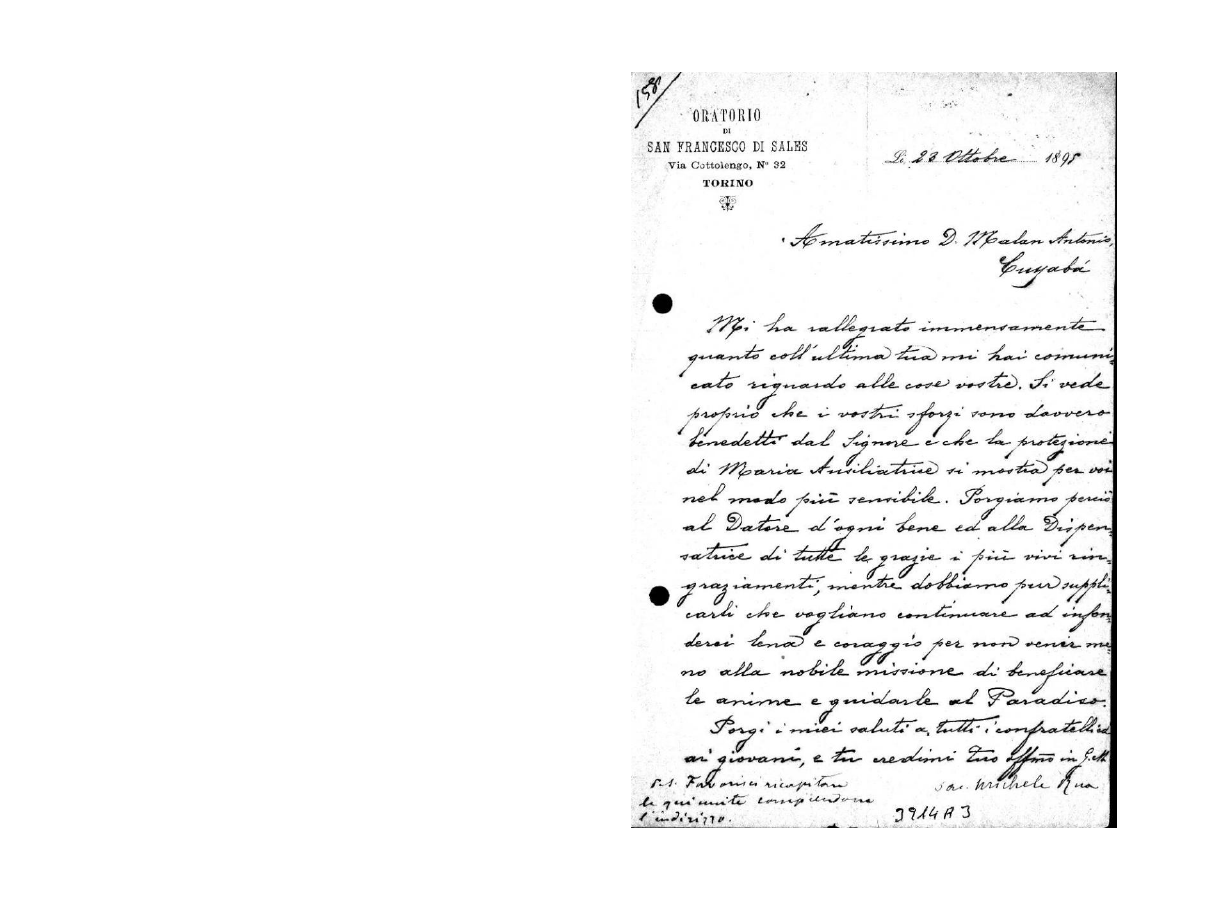 158
ORATORIO
DI
SAN FRANCESCO DI SALES
Via Cottolengo, Nº 32
TORINO
Li 23 Ottobre 1895
Amatissimo D. Malan Antonio,
Cuyabá
Mi ha rallegrato immensamente
quanto coll'ultima tua mi hai comuni-
cato riguardo alle cose vostre. Si vede
proprio che i vostri sforzi sono davvero
benedetti dal Signore e che la protezione
di Maria Ausiliatrice si mostra per voi
nel modo più sensibile. Porgiamo perciò
al Datore d'ogni bene ed alla Dispen-
satrice di tutte le grazie i più vivi rin-
graziamenti, mentre dobbiamo pur suppli-
carli che vogliano continuare ad infon-
derci lena e coraggio per non venir me-
no alla nobile missione di beneficare
le anime e guidarle al Paradiso.
Porgi i miei saluti a tutti i confratelli ed
ai giovani, e tu credimi tuo affmo in G. e M.
Sac. Michele Rua
P.S. Favorisci ricapitare
le qui unite compiendone
l'indirizzo.
3914A3